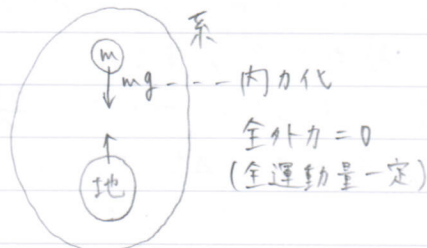 系
m
mg---内力化
全外力=0
(全運動量一定)
地